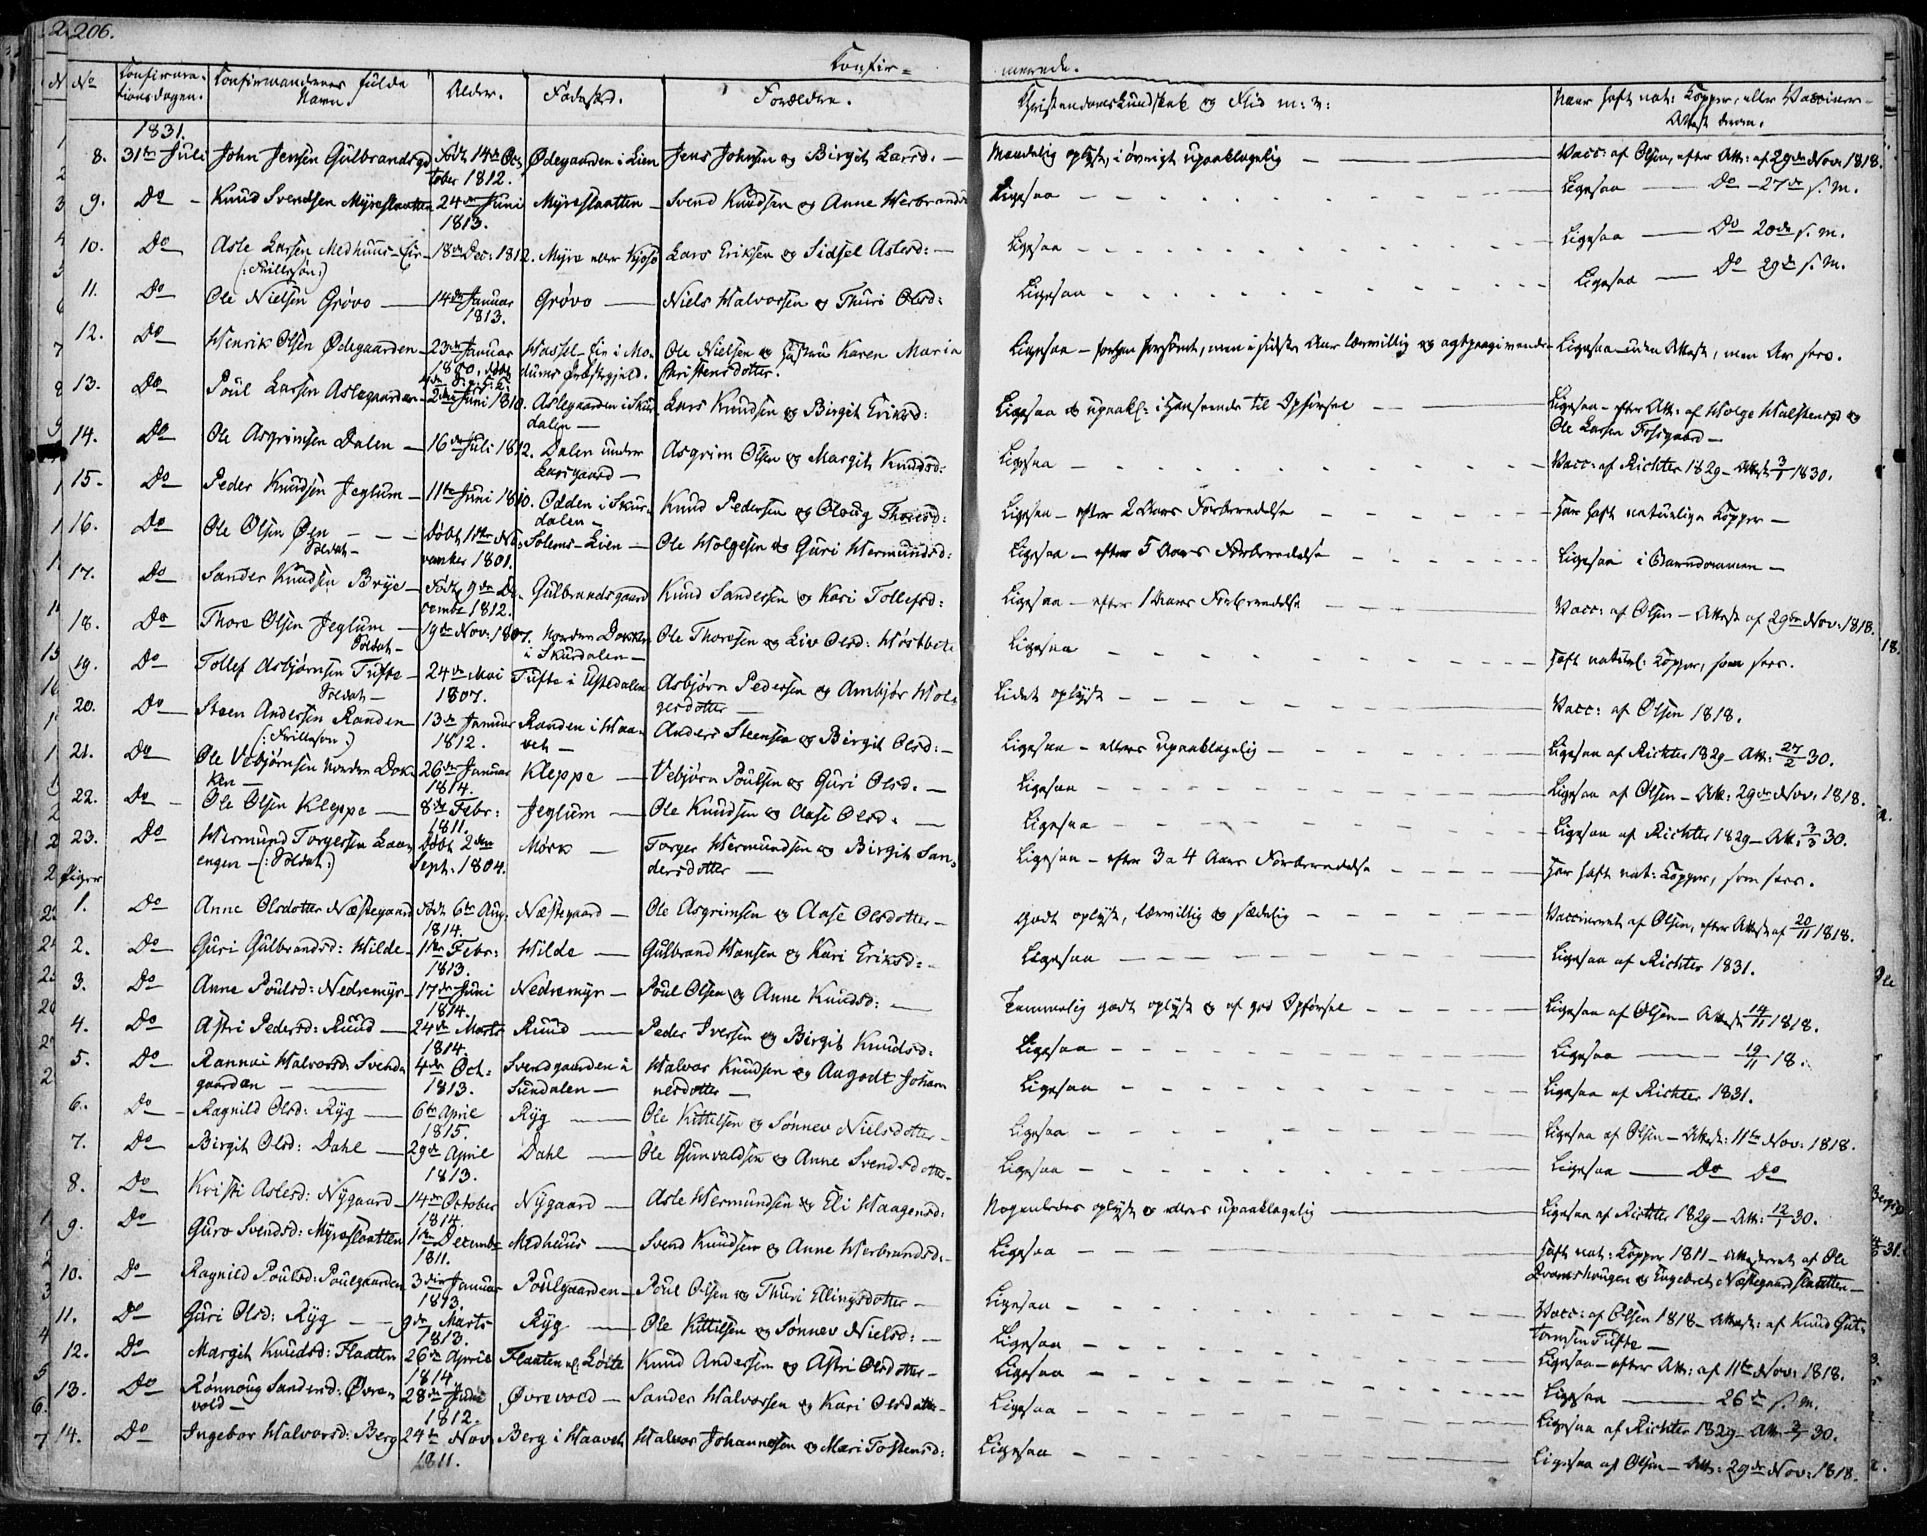 206.
Confir= merede.
No Confirmationsdagen. Confirmandernes fulde Navn. Alder. Fødested. Forældre. Christendomskundskab og Flid m: v: Naar haft nat: Kopper, eller Vaccineret
1831.
8. 31te Juli John Jensen Gulbrandsgd født 14de Oc- Ødegaarden i Lien Jens Johnsen og Birgit Larsd: — Maadelig oplyst, i øvrigt upaaklagelig — Vacc: af Olsen, efter Att: af 29de Nov: 1818.
tober 1812.
9. Do — Knud Svendsen Myreslaatten 24de Juni Myreslaatten — Svend Knudsen og Anne Herbrandsd Ligesaa — Ligesaa — Do — 27de s. M.
1813.
10. Do Asle Larsen Medhuus-Eie 18de Dec: 1812. Myre eller Kjøsø Lars Eriksen og Sidsel Aslesd: — Ligesaa — Ligesaa — Do 20de s. M.
(: Frillesøn :)
11. Do Ole Nielsen Grøvo — 14de Januar Grøvo — Niels Halvorsen og Thuri Olsd: Ligesaa — Ligesaa — Do 29de s. M.
1813.
12. Do Henrik Olsen Ødegaarden — 23de Januar Hassel-Eie i Mo- Ole Nielsen og Hustru Karen Maria Ligesaa — forhen forsømt, men i sidste Aar lærvillig og agtpaagivende Ligesaa — uden Attest, men Ar sees.
1810, døbt dums Præstegjeld. Christensdotter.
13. Do Poul Larsen Aslegaarden — 2den Juni 1810. Aslegaarden i Skur- Lars Knudsen og Birgit Eriksd: Ligesaa & upaakl: i Henseende til Opførsel — Ligesaa — efter Att: af Holge Halstensgd og
dalen — Ole Larsen Fossgaard —
14. Do Ole Asgrimsen Dalen — 16de Juli 1812. Dalen under Asgrim Olsen og Margit Knudsd: Ligesaa — Vacc: af Richter 1829 — Attest 3/1 1830.
Larsgaard —
15. Do Peder Knudsen Jeglum — 11te Juni 1810. Odden i Skur- Knud Pedersen og Oloug Thoresd: Ligesaa — efter 2 Aars Forberedelse — Har haft naturlige Kopper —
dalen —
16. Do Ole Olsen Øen — — — døbt 1ste No- Solems-Eien — Ole Holgesen og Guri Hermundsd: Ligesaa — efter 5 Aars Forberedelse — Ligesaa i Barndommen —
Soldat — vember 1801.
17. Do Sander Knudsen Brye — Født 9de De- Gulbrandsgaard Knud Sandersen og Kari Tollefsd: Ligesaa — efter 1 Aars Forberedelse — Vacc: af Olsen — Attest af 29de Nov: 1818.
cembr 1812.
18. Do Thore Olsen Jeglum — 19de Nov: 1807. Norden Dokken Ole Thoresen og Liv Olsd: Ligesaa — Haft naturl: Kopper, som sees.
Soldat — i Skurdalen —
19. Do Tollef Asbjørnsen Tufte — 24de Mai Tufte i Ustedalen Asbjørn Pedersen og Ambjør Hol- Lidet oplyst — Vacc: af Olsen 1818.
Soldat — 1807. gesdotter —
20. Do Steen Andersen Randen — 13de Januar Randen i Haa- Anders Steensen og Birgit Olsd: — Ligesaa — ellers upaaklagelig — Ligesaa af Richter 1829 — Att: 27/2 30.
(: Frillesøn :) 1812. vet —
21. Do Ole Vebjørnsen Norden Dok- 26de Januar Kleppe — Vebjørn Poulsen og Guri Olsd. — Ligesaa — Ligesaa af Olsen — Att: 29de Nov: 1818.
ken — 1814.
22. Do — Ole Olsen Kleppe — 8de Febr: Jeglum — Ole Knudsen og Aase Olsd: — Ligesaa — Ligesaa af Richter 1829 — Att: 3/3 30.
1811.
23. Do Hermund Torgersen Laae døbt 2den Mørk — Torger Hermundsen og Birgit San- Ligesaa — efter 3 a 4 Aars Forberedelse — Har haft nat: Kopper, som sees.
engen — (: Soldat :) Sept: 1804. dersdotter —
Piger
1. Do Anne Olsdotter Næstegaard født 6te Aug: Næstegaard — Ole Asgrimsen og Aase Olsdotter — Godt oplyst, lærvillig og sædelig — Vaccineret af Olsen, efter Attest af 20/11 1818.
1814.
2. Do Guri Gulbrandsd: Hilde — 1ste Febr: Hilde — Gulbrand Hansen og Kari Eriksd: — Ligesaa — Ligesaa af Richter 1831.
1813.
3. Do Anne Poulsd: Nedremyr — 17de Juni Nedremyr — Poul Olsen og Anne Knudsd: — Temmelig godt oplyst og af god Opførsel — Ligesaa af Olsen — Attest 14/11 1818.
1814.
4. Do Astri Pedersd: Ruud — 24de Marts Ruud — Peder Iversen og Birgit Knudsd: Ligesaa — Ligesaa — 19/11 18.
1814.
5. Do Rannei Halvorsd: Svend- 4de Oct: Svendgaarden i Halvor Knudsen og Aagodt Johan- Ligesaa — Ligesaa af Richter 1831.
gaarden — 1813. Sundalen — nesdotter —
6. Do — Ragnild Olsd: Ryg — 6te April Ryg — Ole Kittilsen og Sønnev Nielsdotter — Ligesaa — Ligesaa af Olsen — Attest: 11te Nov: 1818.
1815.
7. Do Birgit Olsd: Dahl — 29de April Dahl — Ole Gunvaldsen og Anne Svendsdotter — Ligesaa — Ligesaa — Do Do
1813.
8. Do Kristi Aslesd: Nygaard — 14de October Nygaard — Asle Hermundsen og Eli Haagensd: Nogenledes oplyst og ellers upaaklagelig — Ligesaa af Richter 1829 — Att: 12/1 30.
1814.
9. Do Guro Svendsd: Myreslaatten 1ste Decembr Medhuus — Svend Knudsen og Anne Herbrandsd: Ligesaa — Haft nat: Kopper 1811 — Attesteret af Ole
1811. og Engebret Næstegaardslaatten —
10. Do Ragnild Poulsd: Poulgaarden 3die Januar Poulgaarden — Poul Olsen og Thuri Ellingsdotter — Ligesaa — Vacc: af Olsen 1818 — Attest: af Knud Gut-
1813. tormsen Tufte —
11. Do Guri Olsd: Ryg — — 9de Marts Ryg — Ole Kittilsen og Sønnev Nielsd: — Ligesaa — Ligesaa — efter Att: af 11te Nov: 1818.
1813.
12. Do Margit Knudsd: Flaaten 26de April Flaaten el. Løite Knud Andersen og Astri Olsdotter — Ligesaa — Ligesaa — 26de s. M.
1814.
13. Do Rønnoug Sandersd: Øvre- 28de Juni Øvrevold — Sander Halvorsen og Kari Olsdotter — Ligesaa — Ligesaa af Richter 1829 — Att: 30.
vold — 1812.
14. Do Ingebor Halvorsd: Berg 24de Nov: Berg i Haavet Halvor Johannesen og Mari Tostensd: Ligesaa — Ligesaa af Olsen — Att: 29de Nov: 1818.
1811.